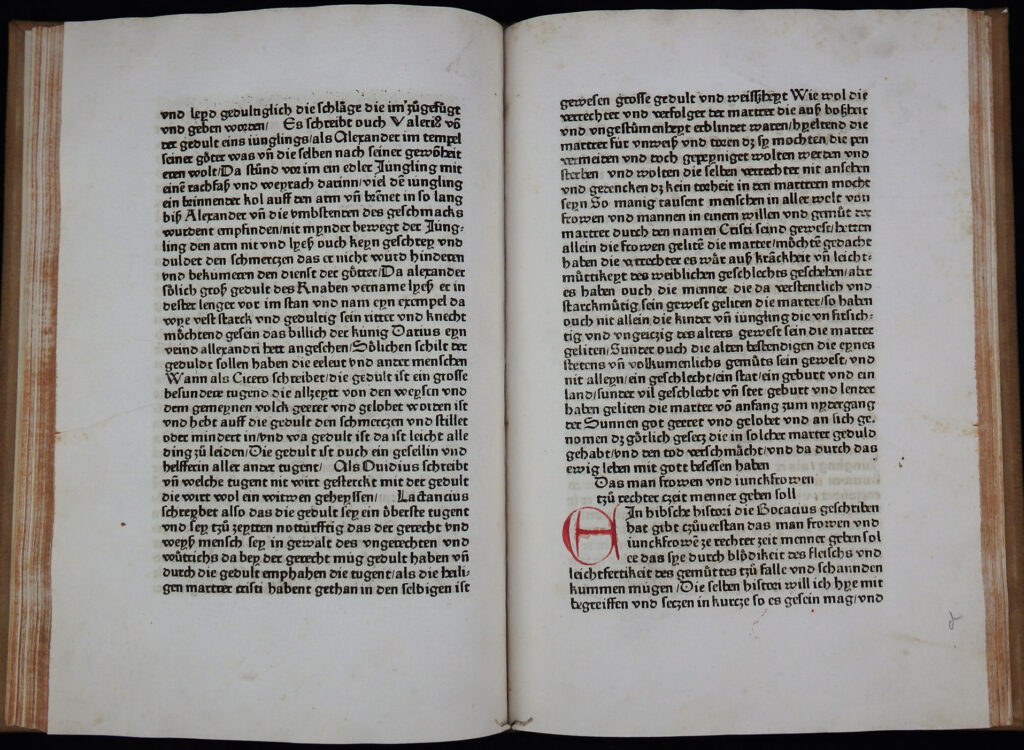 vnd leyd gedultiglich die schläge die im zůgefügt
vnd geben worden/ Es schreibt ouch Valeri9 vō
der gedult eins iunglings/als Alexander im tempel
seiner göter was vn̄ die selben nach seiner gewōheit
eren wolt/Da stůnd vor im ein edler Jungling mit
einē rachfaß vnd weyrach darinn/viel dē iungling
ein brinnender kol auff den arm vn̄ brēnet in so lang
biß Alexander vn̄ die vmbstenten des geschmacks
wurdent empfinden/nit mynder beweget der Jüng⸗
ling den arm nit vnd lyeß ouch keyn geschrey vnd
duldet den schmertzen das er nicht würd hinderen
vnd bekümeren den dienst der götter/Da alexander
sölich groß gedult des Knaben vername lyeß er in
dester lenger vor im stan vnd nam eyn exempel da
wye vest starck vnd gedultig sein ritter vnd knecht
möchtend gesein das billich der künig Darius eyn
veind allexandri hett angesehen/Sölichen schilt der
geduldt sollen haben die eeleut vnd ander menschen
Wann als Cicero schreibet/die gedult ist ein grosse
besundere tugend die allzeyt von den weysen vnd
dem gemeynen volck geeret vnd gelobet worden ist
vnd hebt auff die gedult den schmertzen vnd stillet
oder mindert in/vnd wa gedult ist da ist leicht alle
ding zů leiden/Die gedult ist ouch ein gesellin vnd
helfferin aller ander tugent/ Als Ouidius schreibt
vn̄ welche tugent nit wirt gesterckt mit der gedult
die wirt wol ein witwen geheyssen/ Lactancius
schreybet also das die gedult sey ein öberste tugent
vnd sey tzů zeytten notturfftig das der gerecht vnd
weyß mensch sey in gewalt des vngerechten vnd
wůtrichs da bey der gerecht müg gedult haben vn̄
durch die gedult emphahen die tugent/als die heili⸗
gen martrer cristi habent gethan in den seldigen ist
gewesen grosse gedult vnd weißheyt Wie wol die
verrechter vnd verfolger der martrer die auß boßheit
vnd vngestümenheyt erblindet waren/hyeltend die
martrer für vnweiß vnd toren dz sy mochten die pen
vermeiden vnd doch gepeyniget wolten werden vnd
sterben vnd wolten die selben verrechter nit ansehen
vnd gedencken dz kein torheit in den martrern mocht
seyn So manig tausent menschen in aller welt von
frowen vnd mannen in einem willen vnd gemüt der
martrer durch den namen Cristi seind gewest/hetten
allein die frowen gelitē die marter/möchtē gedacht
haben die verrechter es wär auß krāckheit vn̄ leicht⸗
müttikeyt des weiblichen geschlechts geschehen/aber
es haben ouch die menner die da verstentlich vnd
starckmütig sein gewest geliten die marter/so haben
ouch nit allein die kinder vn̄ iungling die vnfirsich⸗
tig vnd vngeitzig des alters gewest sein die marter
geliten/Sunder ouch die alten bestendigen die eynes
stetens vn̄ volkumenlichs gemüts sein gewest/vnd
nit alleyn/ein geschlecht/ein stat/ein geburt vnd ein
land/sunder vil geschlecht vn̄ stet geburt vnd lender
haben geliten die marter vō anfang zum nydergang
der Sunnen got geeret vnd gelobet vnd an sich ge⸗
nomen dz götlich gesetz die in solcher marter geduld
gehabt/vnd den tod verschmächt/vnd da durch das
ewig leben mit gott besessen haben
Das man frowen vnd iunckfrowen
tzů rechter czeit menner geben soll
EIn hibsche histori die Bocacius geschriben
hat gibt czůuerstan das man frowen vnd
iunckfrowē ze rechter zeit menner geben sol
ee das sye durch blödikeit des fleischs vnd
leichtfertikeit des gemüttes tzů falle vnd schannden
kummen mügen/Die selben histori will ich hye mit
begreiffen vnd setzen in kurtze so es gesein mag/vnd